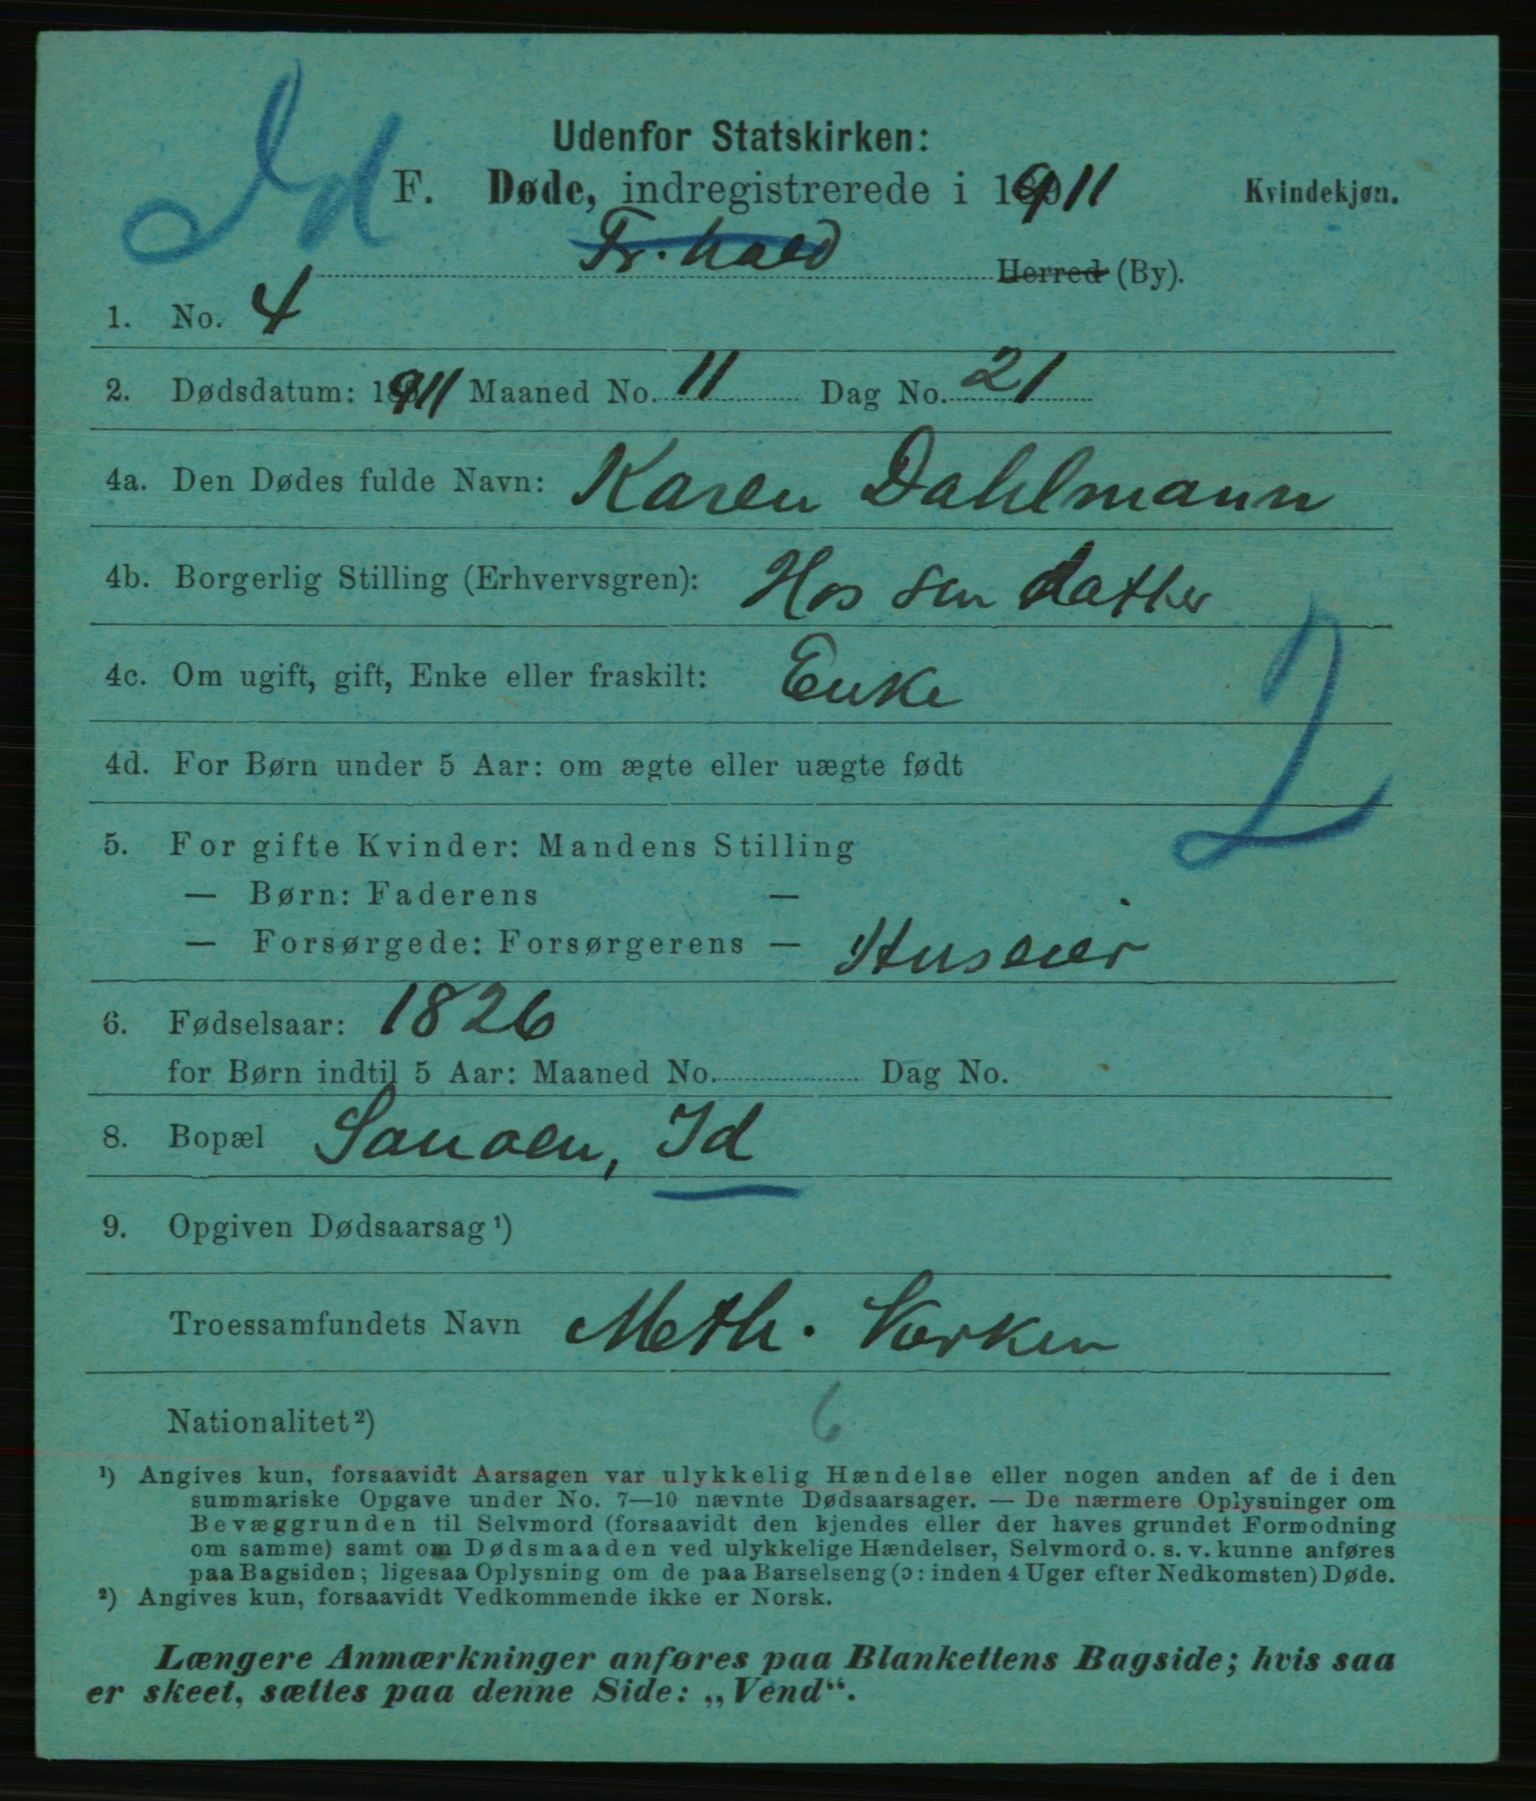 Id
Udenfor Statskirken:
F. Døde, indregistrerede i 1911 Kvindekjøn.
Fr.hald Herred (By).
1. No. 4
2. Dødsdatum: 1911 Maaned No. 11 Dag No. 21
4a. Den Dødes fulde Navn: Karen Dahlmann
4b. Borgerlig Stilling (Erhvervsgren): Hos sen datter
4c. Om ugift, gift, Enke eller fraskilt: Enke
4d. For Børn under 5 Aar: om ægte eller uægte født
2
5. For gifte Kvinder: Mandens Stilling
— Børn: Faderens —
— Forsørgede: Forsørgerens — Huseier
6. Fødselsaar: 1826
for Børn indtil 5 Aar: Maaned No. Dag No.
8. Bopæl Id
9. Opgiven Dødsaarsag ¹)
Troessamfundets Navn Meth. Kirken
Nationalitet ²)
6
¹) Angives kun, forsaavidt Aarsagen var ulykkelig Hændelse eller nogen anden af de i den
summariske Opgave under No. 7—10 nævnte Dødsaarsager. — De nærmere Oplysninger om
Bevæggrunden til Selvmord (forsaavidt den kjendes eller der haves grundet Formodning
om samme) samt om Dødsmaaden ved ulykkelige Hændelser, Selvmord o. s. v. kunne anføres
paa Bagsiden; ligesaa Oplysning om de paa Barselseng (ɔ: inden 4 Uger efter Nedkomsten) Døde.
²) Angives kun, forsaavidt Vedkommende ikke er Norsk.
Længere Anmærkninger anføres paa Blankettens Bagside; hvis saa
er skeet, sættes paa denne Side: „Vend“.